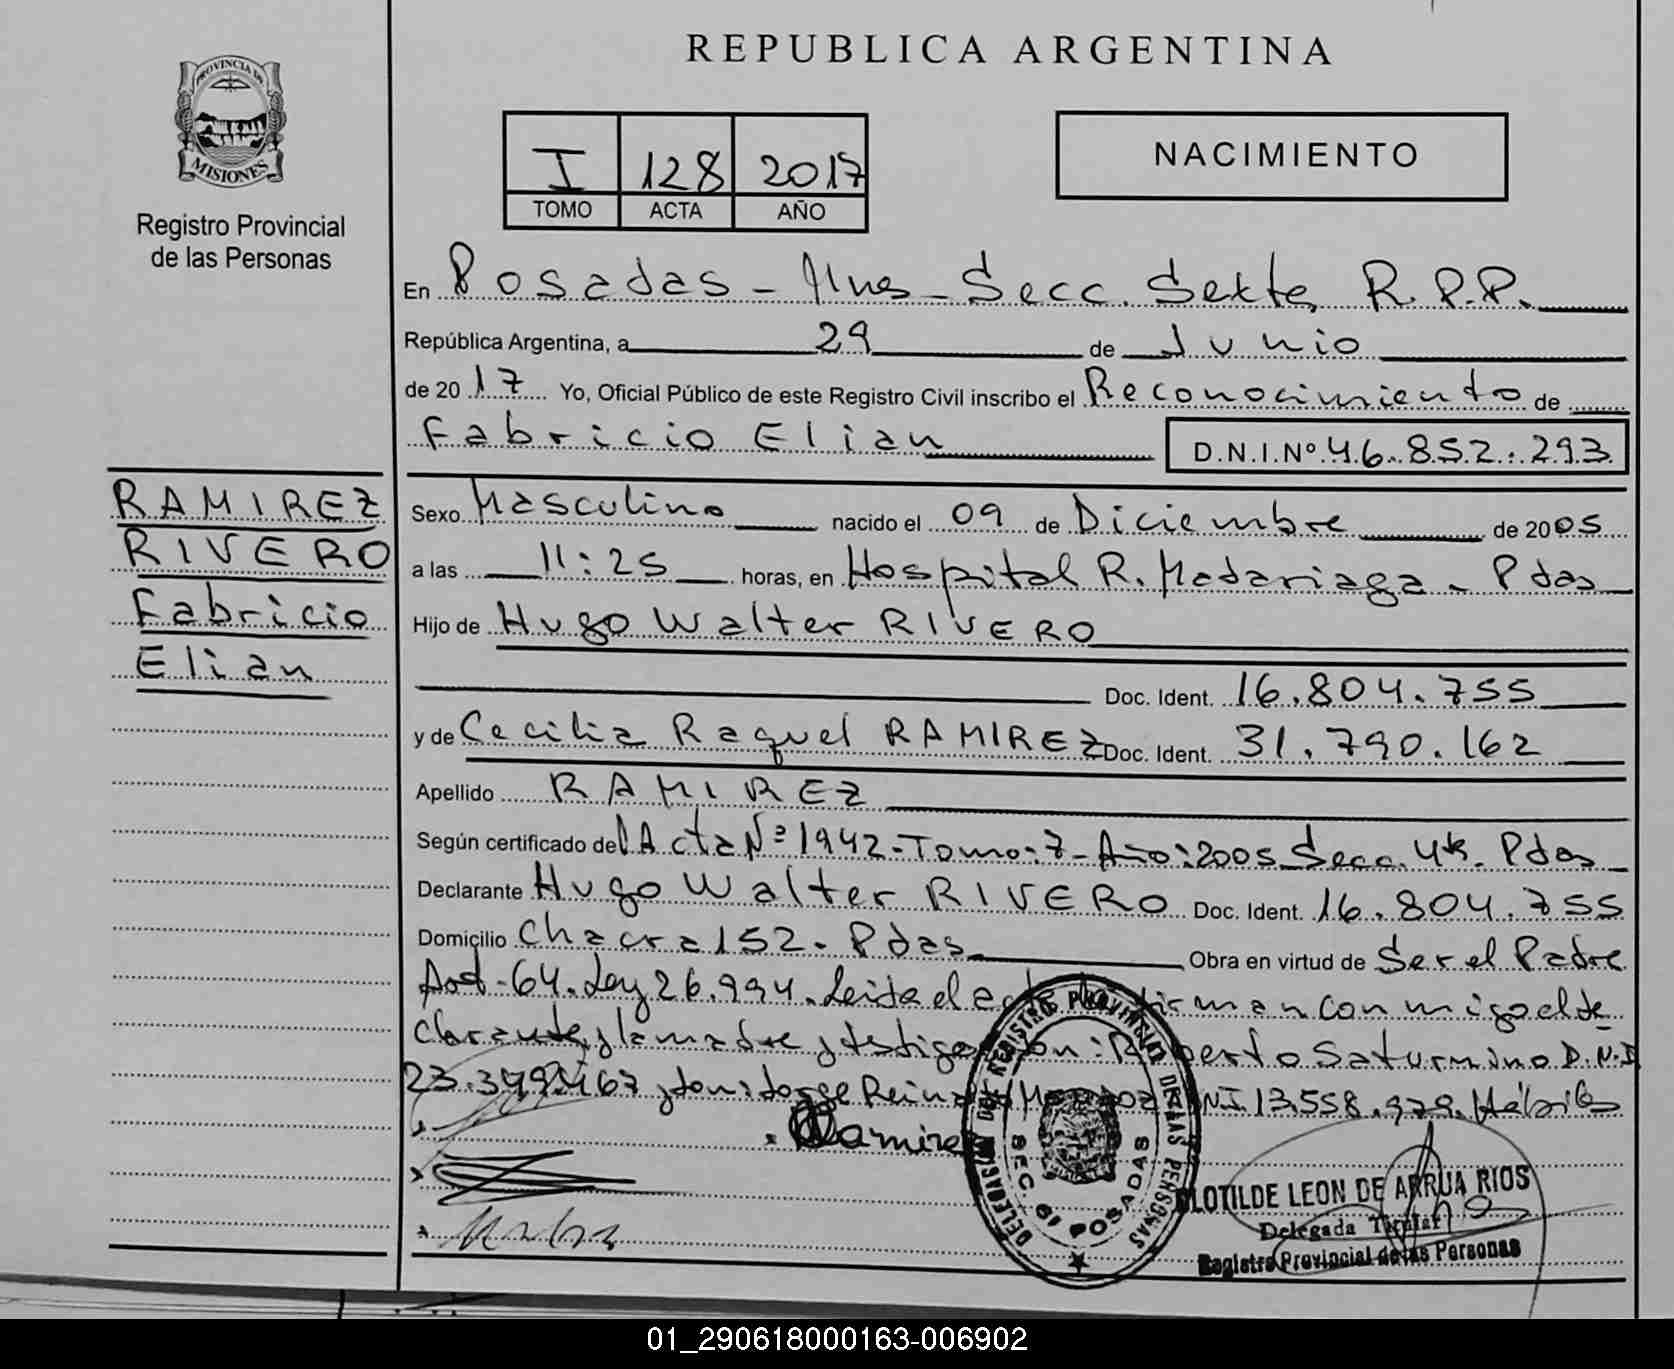 REPUBLICA ARGENTINA
PROVINCIA DE
MISIONES
Registro Provincial
de las Personas
I 128 2017
TOMO ACTA AÑO
NACIMIENTO
En Posadas - Mnes - Secc. Sexta, R.P.P.
República Argentina, a 29 de Junio
de 2017 Yo, Oficial Público de este Registro Civil inscribo el Reconocimiento de
Fabricio Elian D.N.I.Nº 46.852.293
RAMIREZ
RIVERO
Fabricio
Elian
Sexo Masculino nacido el 09 de Diciembre de 2005
a las 11:25 horas, en Hospital R. Madariaga - Pdas
Hijo de Hugo Walter RIVERO
Doc. Ident. 16.804.755
y de Cecilia Raquel RAMIREZ Doc. Ident. 31.790.162
Apellido RAMIREZ
Según certificado del Acta Nº 1942 - Tomo: 7 - Año: 2005 Secc. 4ta. Pdas
Declarante Hugo Walter RIVERO Doc. Ident. 16.804.755
Domicilio Chacra 152 - Pdas Obra en virtud de Ser el Padre
Art. 64. Ley 26.994. Leida el acta firman conmigo el de
clarante, y la madre y testigos Don: Roberto Saturnino D.N.I
23.379.467 y don: Jorge DNI 13.558.979. Hábiles
Ramirez
DELEGACION DEL REGISTRO PROVINCIAL DE LAS PERSONAS
SEC. 6ª POSADAS
CLOTILDE LEON DE ARRUA RIOS
Delegada Titular
Registro Provincial de las Personas
01_290618000163-006902